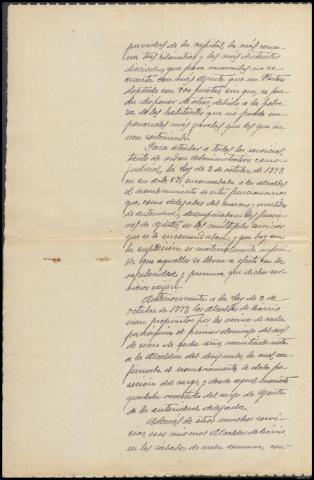 paradas de la capital la más cerca-
na tres kilometros y las más distantes
dieciocho, que para recorrerlas no se
cuenta con más Agente que un Peaton
dotado con 400 pesetas sin que se pue-
da disponer de otros, debido a la pobre-
za de los habitantes que no puede im-
ponerseles más gabelas que las que vie-
nen sosteniendo.
Para atender a todos los servicios,
tanto de orden administrativo como
judicial, la Ley de 2 de octubre de 1877,
en su artº encomendaba a los alcaldes
el nombramiento de estos funcionarios
que, como delegados del mismo, y revestidos
de autoridad, desempeñaban las funcio-
nes de Agentes, en los multiples servicios
que se le encomendaban, y que hoy con
la supresión es materialmente imposi-
ble que aquellos se lleven a efecto con la
regularidad y premura que dichos ser-
vicios exijen.
Anteriormente a la Ley de 2 de
octubre de 1877, los Alcaldes de barrio
eran propuestos por los vecinos de cada
parroquia el primer domingo del mes
de enero de cada año, remitiendo nota
a la Alcaldia del designado, la cual con-
firmaba el nombramiento, le daba po-
sesión del cargo y desde aquel momento
quedaba revestido del cargo de Agente
de la autoridad delegada.
Ademas de otros muchos servi-
cios, esos mismos Alcaldes de barrio,
en los sabados de cada semana, con-